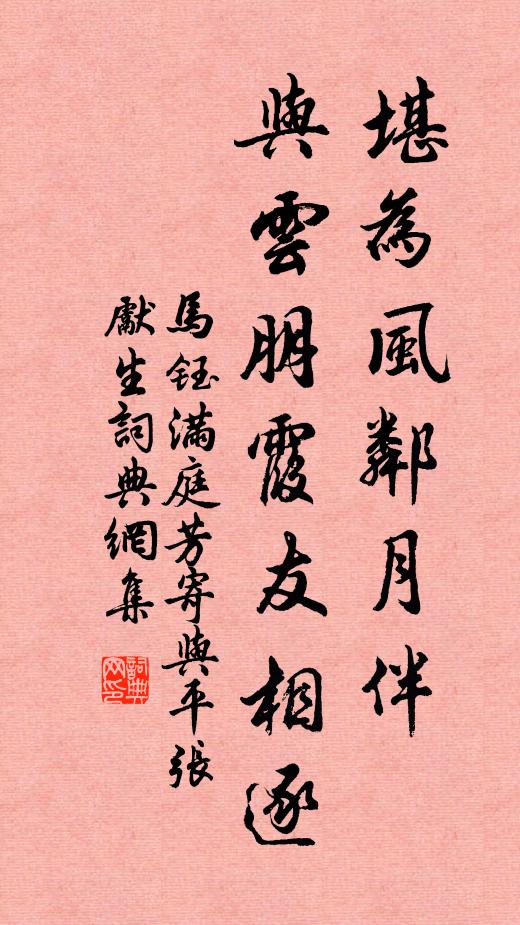 堪為風鄰月伴
與雲朋霞友相逐
馬鈺滿庭芳寄與平張
獻生詞典網集
詞典網印